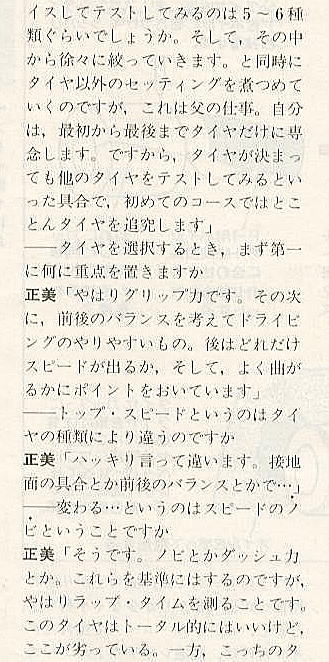 イスしてテストしてみるのは5～6種
類ぐらいでしょうか。そして，その中
から徐々に絞っていきます。と同時に
タイヤ以外のセッティングを煮つめて
いくのですが，これは父の仕事。自分
は，最初から最後までタイヤだけに専
念します。ですから，タイヤが決まっ
ても他のタイヤをテストしてみるとい
った具合で，初めてのコースではとこ
とんタイヤを追究します」
――タイヤを選択するとき，まず第一
に何に重点を置きますか
正美「やはりグリップ力です。その次
に，前後のバランスを考えてドライビ
ングのやりやすいもの。後はどれだけ
スピードが出るか，そして，よく曲が
るかにポイントをおいています」
――トップ・スピードというのはタイ
ヤの種類により違うのですか
正美「ハッキリ言って違います。接地
面の具合とか前後のバランスとかで…」
――変わる…というのはスピードのノ
ビということですか
正美「そうです。ノビとかダッシュ力
とか。これらを基準にはするのですが，
やはりラップ・タイムを測ることです。
このタイヤはトータル的にはいいけど，
ここが劣っている。一方，こっちのタ